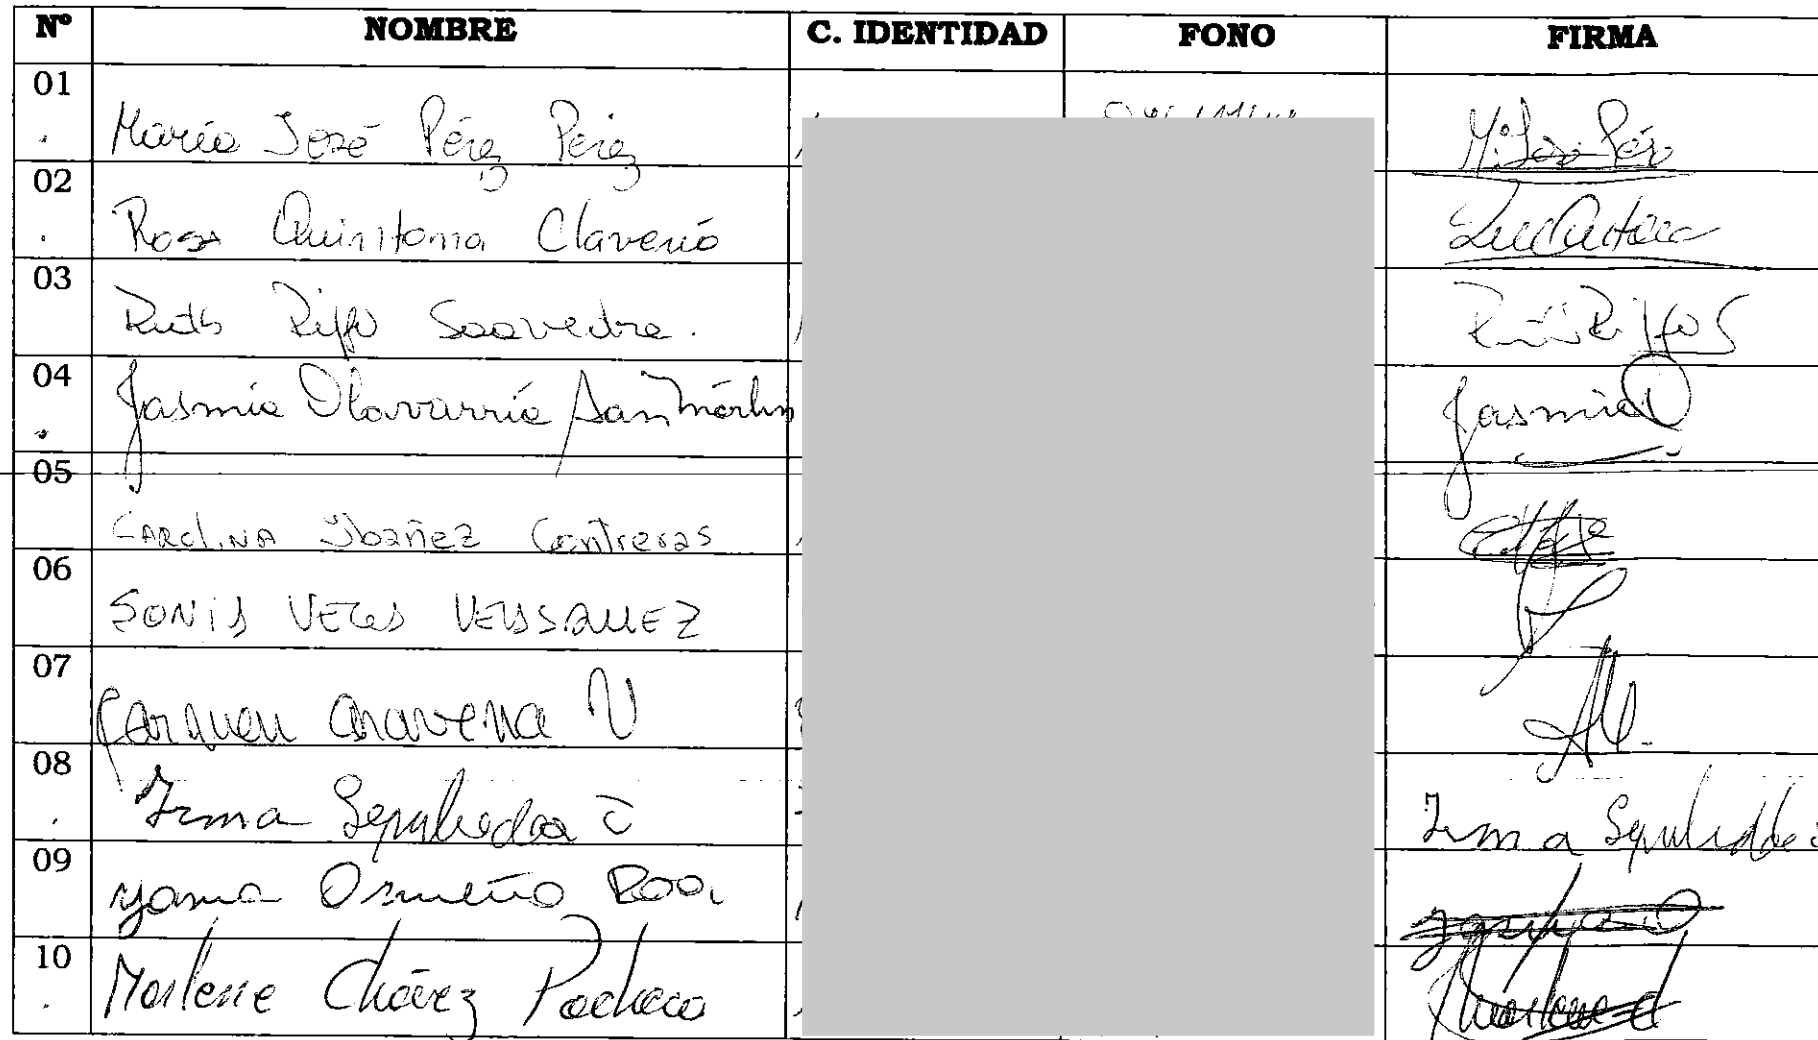 Nº NOMBRE C. IDENTIDAD FONO FIRMA
01. María José Pérez Pérez
02. Rosa Quintana Claverió
03 Ruth Riffo Saavedra. Ruth Riffo S
04. Jasmía Olavarría San Martín Jasmía O
05 CAROLINA Ibañez Contreras
06 SONIA VEGAS VELASQUEZ
07 Carmen Aravena V
08. Irma Sepulveda C Irma Sepulveda C
09 Osmeño Roa.
10. Marlene Chávez Pacheco